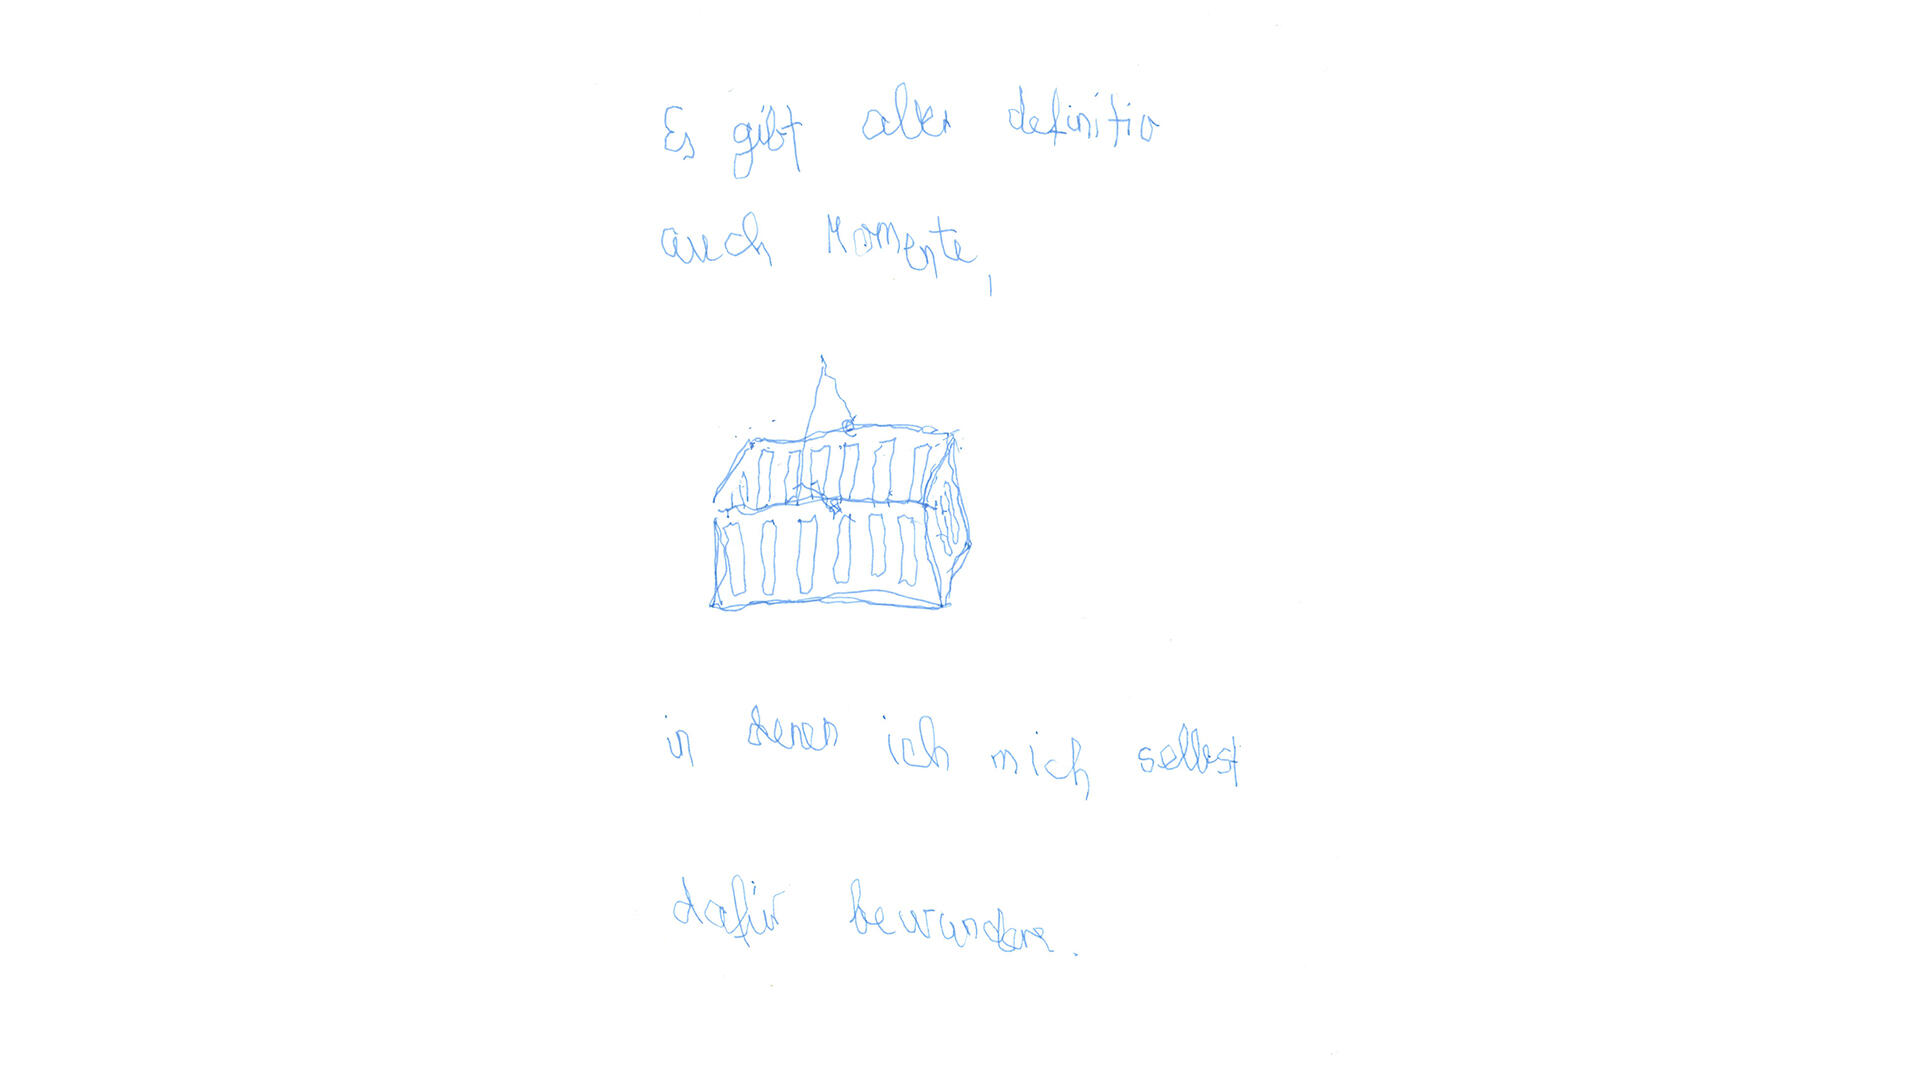 Es gibt aber definitiv
auch Momente,
in denen ich mich selbst
dafür bewundere.